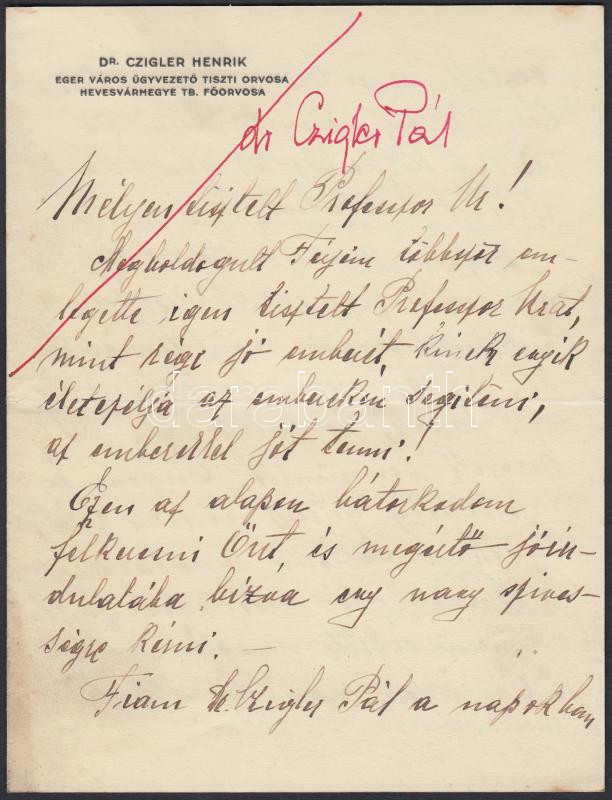 DR. CZIGLER HENRIK
EGER VÁROS ÜGYVEZETŐ TISZTI ORVOSA
HEVESVÁRMEGYE TB. FŐORVOSA
dr Czigler Pál
Mélyen tisztelt Professzor Úr!
Megboldogult Férjem többször em-
legette igen tisztelt Professzor Urat,
mint régi jó emberét kinek egyik
életcélja az embereken segíteni,
az emberekkel jót tenni!
Ezen az alapon bátorkodom
felkeresni Önt és megértő jóin-
dulatába bízva egy nagy szíves-
ségre kérni. —
Fiam Dr. Czigler Pál a napokban
darabanth